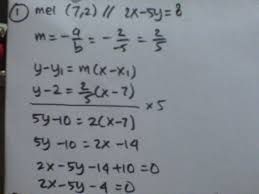 ① mel (7,2) // 2x-5y=8
m = -a/b = -2/-5 = 2/5
y-y₁ = m(x-x₁)
y-2 = 2/5(x-7)
×5
5y-10 = 2(x-7)
5y-10 = 2x-14
2x-5y-14+10=0
2x-5y-4=0